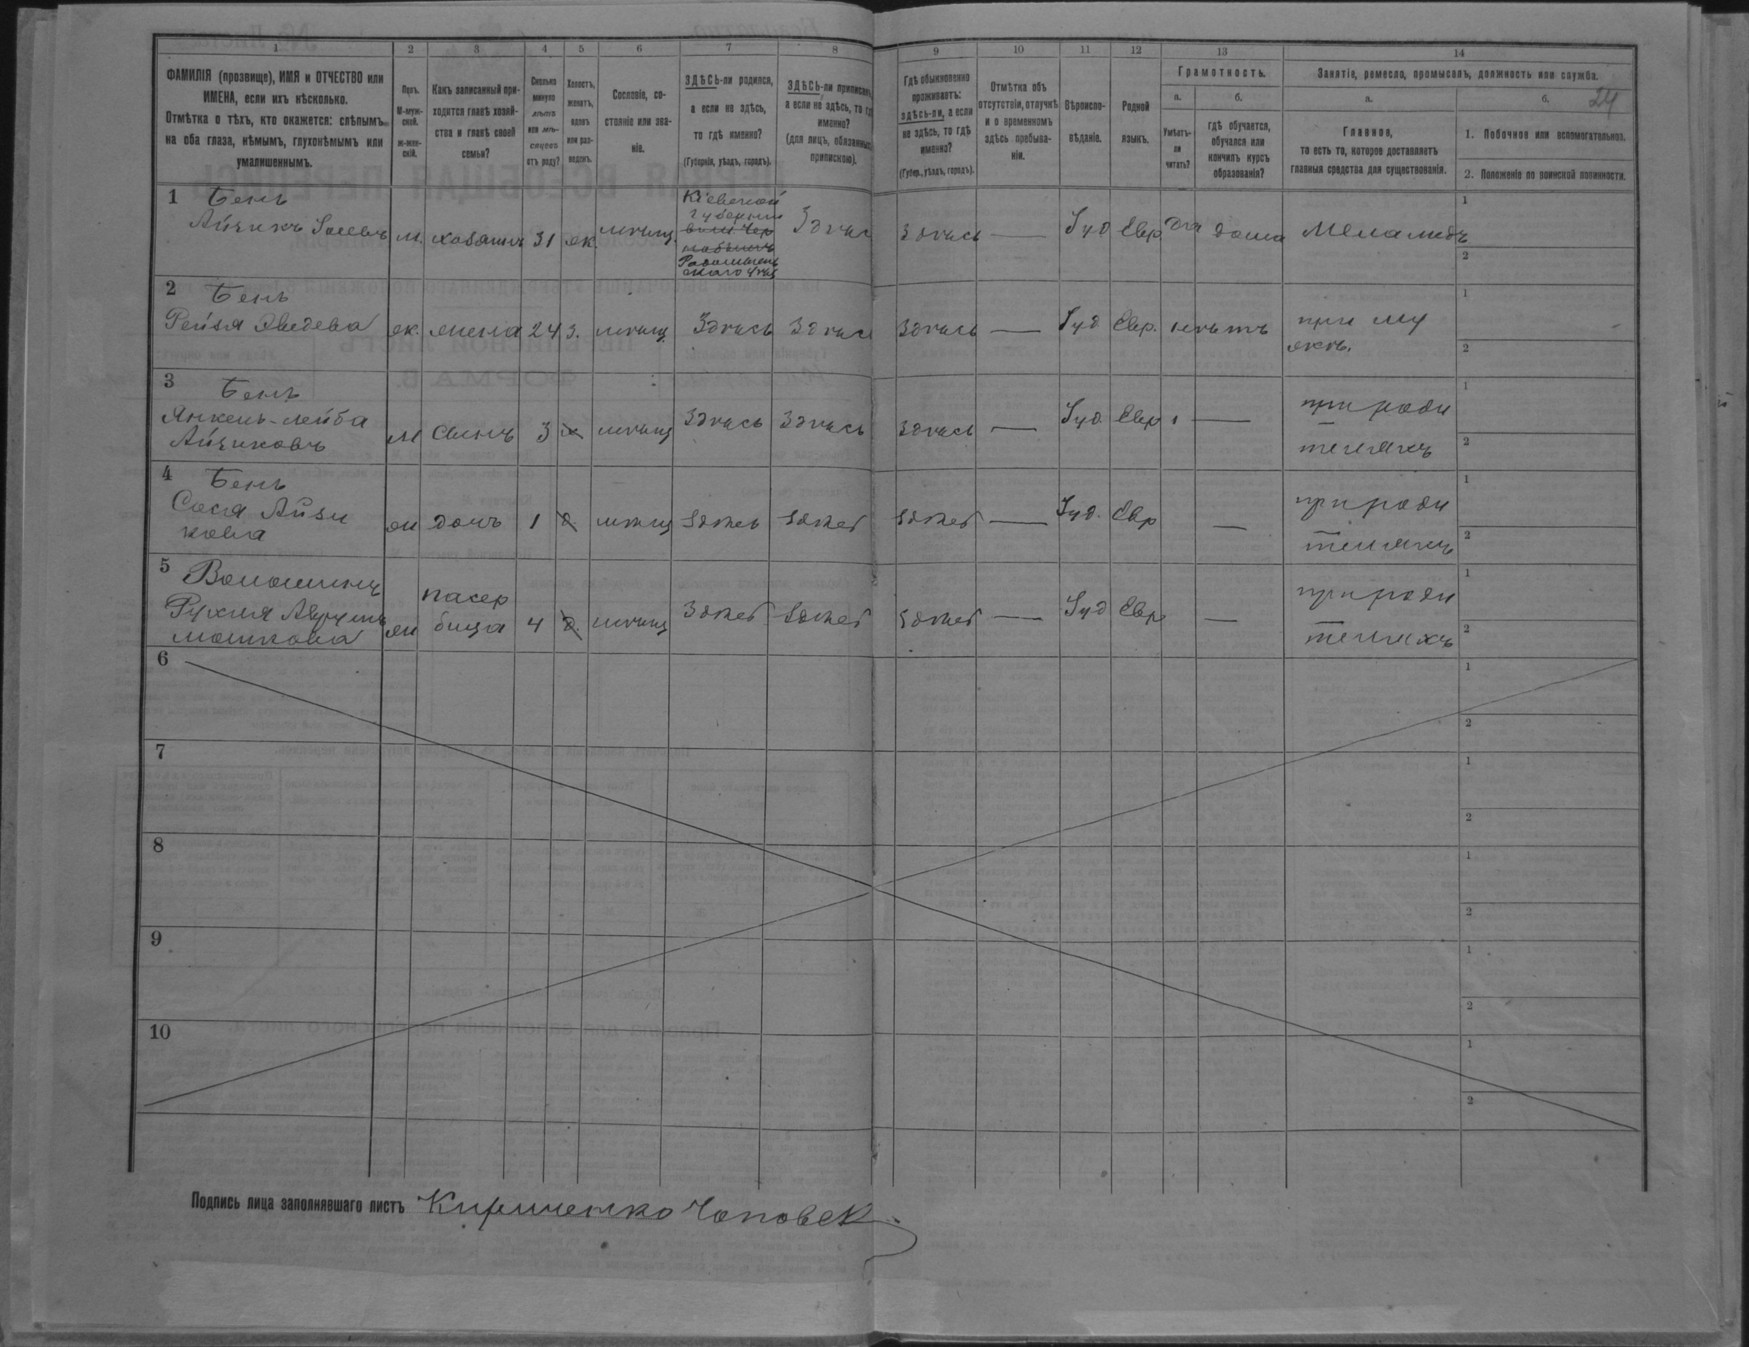 24
1
2
3
4
5
6
7
8
9
10
11
12
13
14
ФАМИЛІЯ (прозвище), ИМЯ и ОТЧЕСТВО или
ИМЕНА, если ихъ нѣсколько.
Отмѣтка о тѣхъ, кто окажется: слѣпымъ
на оба глаза, нѣмымъ, глухонѣмымъ или
умалишеннымъ.
Полъ.
М-муж-
ской.
ж-жен-
скій.
Какъ записанный при-
ходится главѣ хозяй-
ства и главѣ своей
семьи?
Сколько
минуло
лѣтъ
или мѣ-
сяцевъ
отъ роду?
Холостъ,
женатъ,
вдовъ
или раз-
веденъ.
Сословіе, со-
стояніе или зва-
ніе.
ЗДѢСЬ-ли родился,
а если не здѣсь,
то гдѣ именно?
(Губернія, уѣздъ, городъ).
ЗДѢСЬ-ли приписанъ,
а если не здѣсь, то гдѣ
именно?
(для лицъ, обязанныхъ
припискою).
Гдѣ обыкновенно
проживаетъ:
здѣсь-ли, а если
не здѣсь, то гдѣ
именно?
(Губер., уѣздъ, городъ).
Отмѣтка объ
отсутствіи, отлучкѣ
и о временномъ
здѣсь пребыва-
ніи.
Вѣроиспо-
вѣданіе.
Родной
языкъ.
Грамотность.
а.
б.
Умѣетъ-
ли
читать?
гдѣ обучается,
обучался или
кончилъ курсъ
образованія?
Занятіе, ремесло, промыселъ, должность или служба.
а.
б.
Главное,
то есть то, которое доставляетъ
главныя средства для существованія.
1. Побочное или вспомогательное.
2. Положеніе по воинской повинности.
1 Бенъ
Айзикъ м. хозяинъ 31 ж. мѣщ.
Кіевской
губерніи
Радомысль
скаго уѣз
Здѣсь Здѣсь — Іуд Евр Да дома Меламедъ
1
2
2 Бенъ
Рейзя ж. жена 24 З. мѣщ. Здѣсь Здѣсь Здѣсь — Іуд Евр. нѣтъ при му
жѣ.
1
2
3 Бенъ
Янкель-Лейба
Айзиковъ м Сынъ 3 х мѣщ Здѣсь Здѣсь Здѣсь — Іуд. Евр — при роди
теляхъ
1
2
4 Бенъ
Сося Айзи
кова ж дочь 1 д мѣщ Здѣсь Здѣсь Здѣсь — Іуд. Евр — при роди
теляхъ
1
2
5 Волошинъ
Рухля
Мошкова ж падчер
бица 4 д мѣщ Здѣсь Здѣсь Здѣсь — Іуд Евр — при роди
теляхъ
1
2
6
1
2
7
1
2
8
1
2
9
1
2
10
1
2
Подпись лица заполнявшаго листъ Кириченко